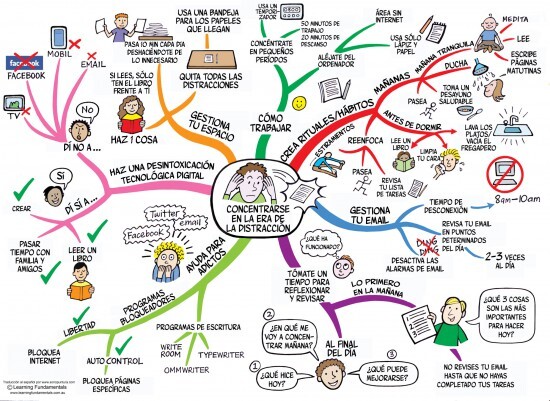 CONCENTRARSE
EN LA ERA DE
LA DISTRACCIÓN
CÓMO
TRABAJAR
USA UN
TEMPORI-
ZADOR
CONCÉNTRATE
EN PEQUEÑOS
PERÍODOS
50 MINUTOS DE
TRABAJO
20 MINUTOS DE
DESCANSO
ALÉJATE DEL
ORDENADOR
ÁREA SIN
INTERNET
USA SÓLO
LÁPIZ Y
PAPEL
CREA RITUALES/HÁBITOS
MAÑANAS
MAÑANA TRANQUILA
MEDITA
LEE
ESCRIBE
PÁGINAS
MATUTINAS
DUCHA
PASEA
TOMA UN
DESAYUNO
SALUDABLE
ANTES DE DORMIR
LAVA LOS
PLATOS/
VACÍA EL
FREGADERO
LIMPIA
TU CARA
LEE UN
LIBRO
REVISA
TU LISTA
DE TAREAS
REENFOCA
ESTIRAMIENTOS
PASEA
GESTIONA
TU EMAIL
TIEMPO DE
DESCONEXIÓN
8am-10am
REVISA TU EMAIL
EN PUNTOS
DETERMINADOS
DEL DÍA
2-3 VECES
AL DÍA
DING
DING
DESACTIVA LAS
ALARMAS DE EMAIL
TÓMATE UN
TIEMPO PARA
REFLEXIONAR
Y REVISAR
¿QUÉ HA
FUNCIONADO?
LO PRIMERO
EN LA MAÑANA
¿QUÉ 3 COSAS
SON LAS MÁS
IMPORTANTES
PARA HACER
HOY?
NO REVISES TU EMAIL
HASTA QUE NO HAYAS
COMPLETADO TUS TAREAS
AL FINAL
DEL DÍA
1
¿QUÉ HICE
HOY?
2
¿EN QUÉ ME
VOY A CONCEN-
TRAR MAÑANA?
3
¿QUÉ PUEDE
MEJORARSE?
AYUDA PARA
ADICTOS
Twitter
email
Facebook
PROGRAMAS DE ESCRITURA
WRITE
ROOM
OMMWRITER
TYPEWRITER
PROGRAMAS
BLOQUEADORES
LIBERTAD
BLOQUEA
INTERNET
AUTO CONTROL
BLOQUEA PÁGINAS
ESPECÍFICAS
HAZ UNA DESINTOXICACIÓN
TECNOLÓGICA DIGITAL
DÍ NO A...
NO
TV
facebook
FACEBOOK
MOBIL
EMAIL
DÍ SÍ A...
SÍ
CREAR
PASAR
TIEMPO CON
FAMILIA Y
AMIGOS
LEER UN
LIBRO
GESTIONA
TU ESPACIO
HAZ 1 COSA
SI LEES, SÓLO
TEN EL LIBRO
FRENTE A TÍ
QUITA TODAS LAS
DISTRACCIONES
PASA 10 MIN CADA DÍA
DESHACIÉNDOTE DE
LO INNECESARIO
USA UNA BANDEJA
PARA LOS PAPELES
QUE LLEGAN
© Learning Fundamentals
www.learningfundamentals.com.au